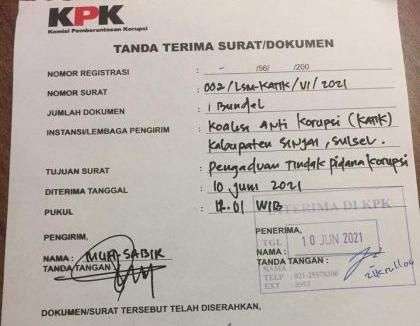 KPK
Komisi Pemberantasan Korupsi
TANDA TERIMA SURAT/DOKUMEN
NOMOR REGISTRASI : - /96/ /200
NOMOR SURAT : 002/LSM-KATIK/VI/2021
JUMLAH DOKUMEN : 1 Bundel
INSTANSI/LEMBAGA PENGIRIM : Koalisi Anti Korupsi (KATIK)
Kabupaten SINJAI, SULSEL.
TUJUAN SURAT : Pengaduan Tindak Pidana Korupsi
DITERIMA TANGGAL : 10 Juni 2021
PUKUL : 12.01 WIB
PENGIRIM,
PENERIMA,
DITERIMA DI KPK
TGL 10 JUN 2021
NAMA : MUH-SABIK
NAMA :
TANDA TANGAN :
TANDA TANGAN :
NAMA
TELP
EXT
DOKUMEN/SURAT TERSEBUT TELAH DISERAHKAN,